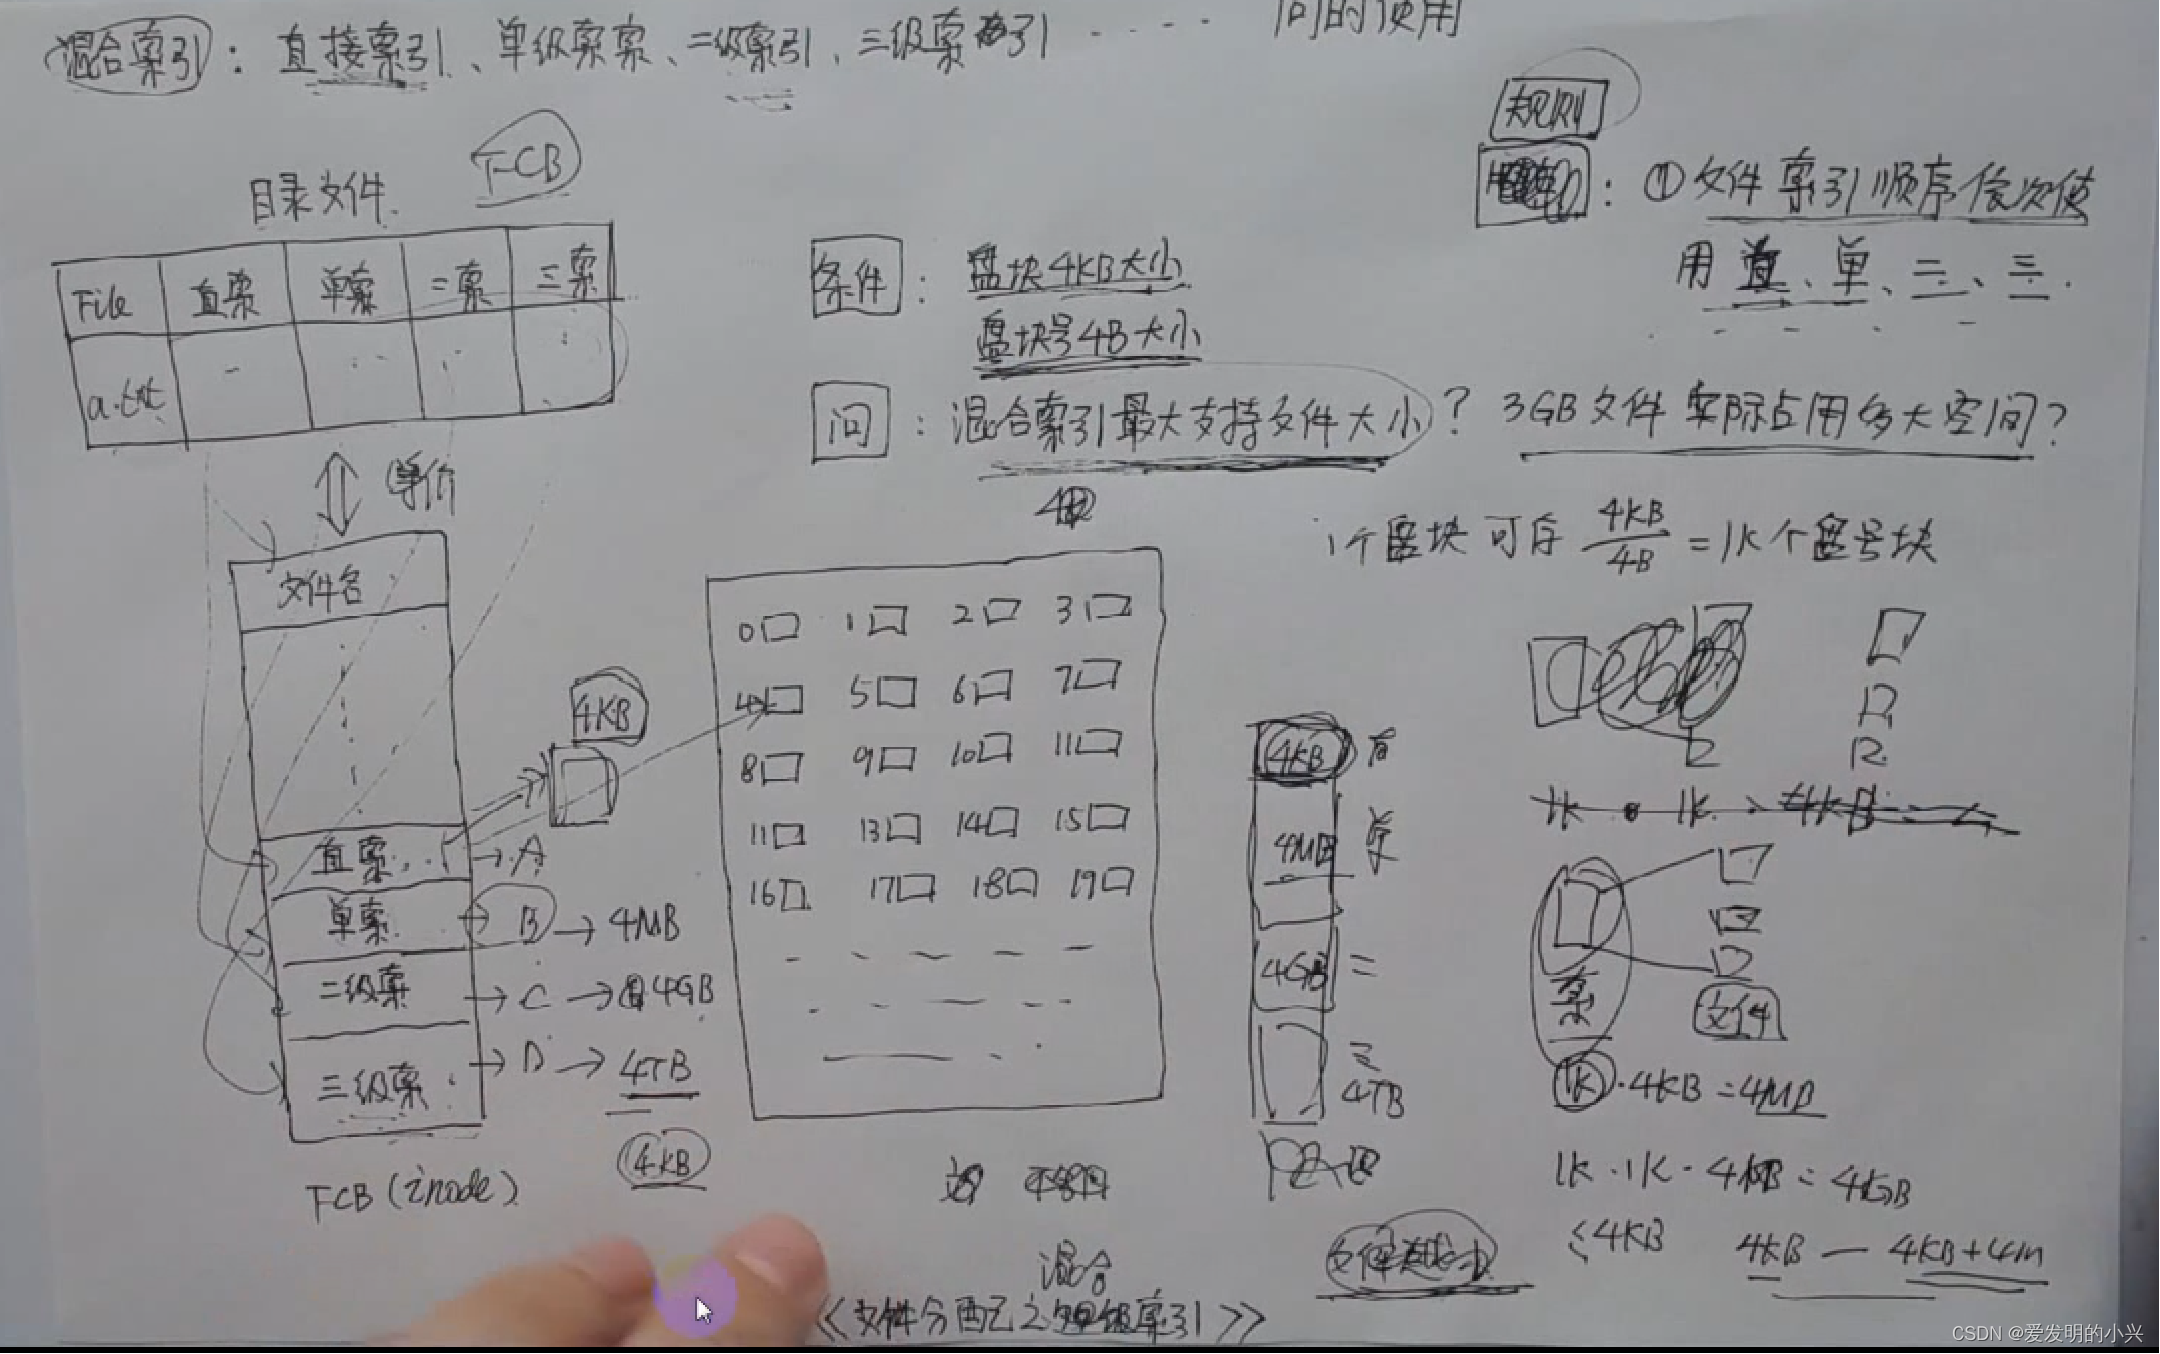 混合索引：直接索引、单级索索、二级索引、三级索引 同时使用
规则
：①文件索引顺序依次使
用直、单、二、三.
FCB
目录文件
File 直索 单索 二索 三索
a.txt
等价
条件：盘块4KB大小
盘块号4B大小
问：混合索引最大支持文件大小？ 3GB文件实际占用多大空间？
1个盘块可存 4KB/4B = 1K个盘号块
文件名
直索 → A
单索 → B → 4MB
二级索 → C → 4GB
三级索 → D → 4TB
FCB (inode)
4KB
4KB
0 1 2 3
4 5 6 7
8 9 10 11
11 13 14 15
16 17 18 19
4KB 直
4MB 单
4GB 二
三
4TB
索
文件
1K · 4KB = 4MB
1K · 1K · 4KB = 4GB
≤4KB 4KB — 4KB+4M
混合
《文件分配之 索引》
CSDN @爱发明的小兴